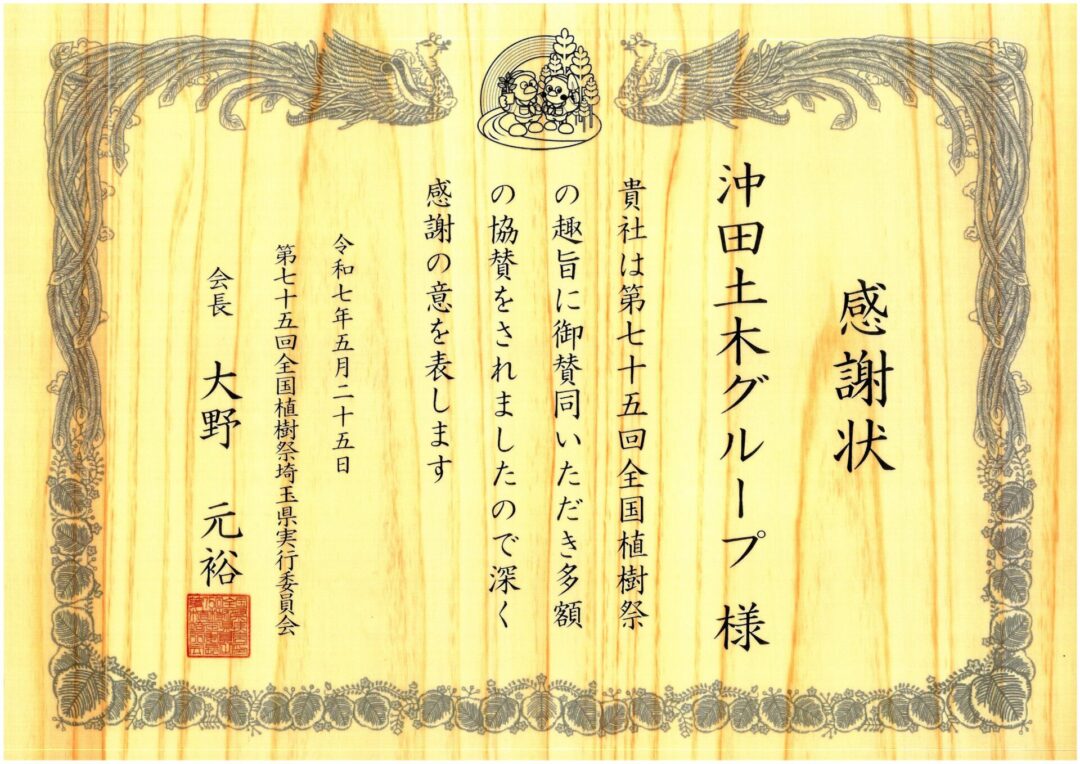 感謝状
沖田土木グループ 様
貴社は第七十五回全国植樹祭
の趣旨に御賛同いただき多額
の協賛をされましたので深く
感謝の意を表します
令和七年五月二十五日
第七十五回全国植樹祭埼玉県実行委員会
会長 大野 元裕